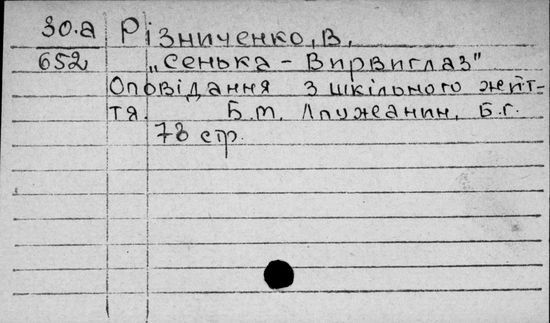 30.а Різниченко, В.
652 „Сенька - Вирвиглаз"
Оповідання з шкільного жит-
тя. Б.м. Лпужанин, Б.г.
78 стр.